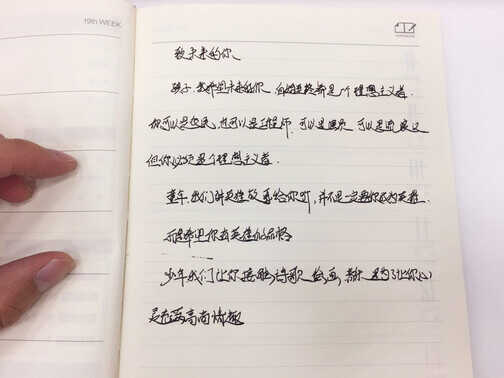 19th WEEK
致未来的你
孩子.我希望未来的你 自始至终都是一个理想主义者.
你可以是农民,也可以是工程师.可以是演员 可以是流浪汉
但你必须是个理想主义者.
童年,我们讲英雄故事给你听,并不是一定要你成为英雄.
而是希望你有英雄的品格
少年我们让你接触诗歌 绘画,音乐 是为了让你心
灵充满高尚情趣